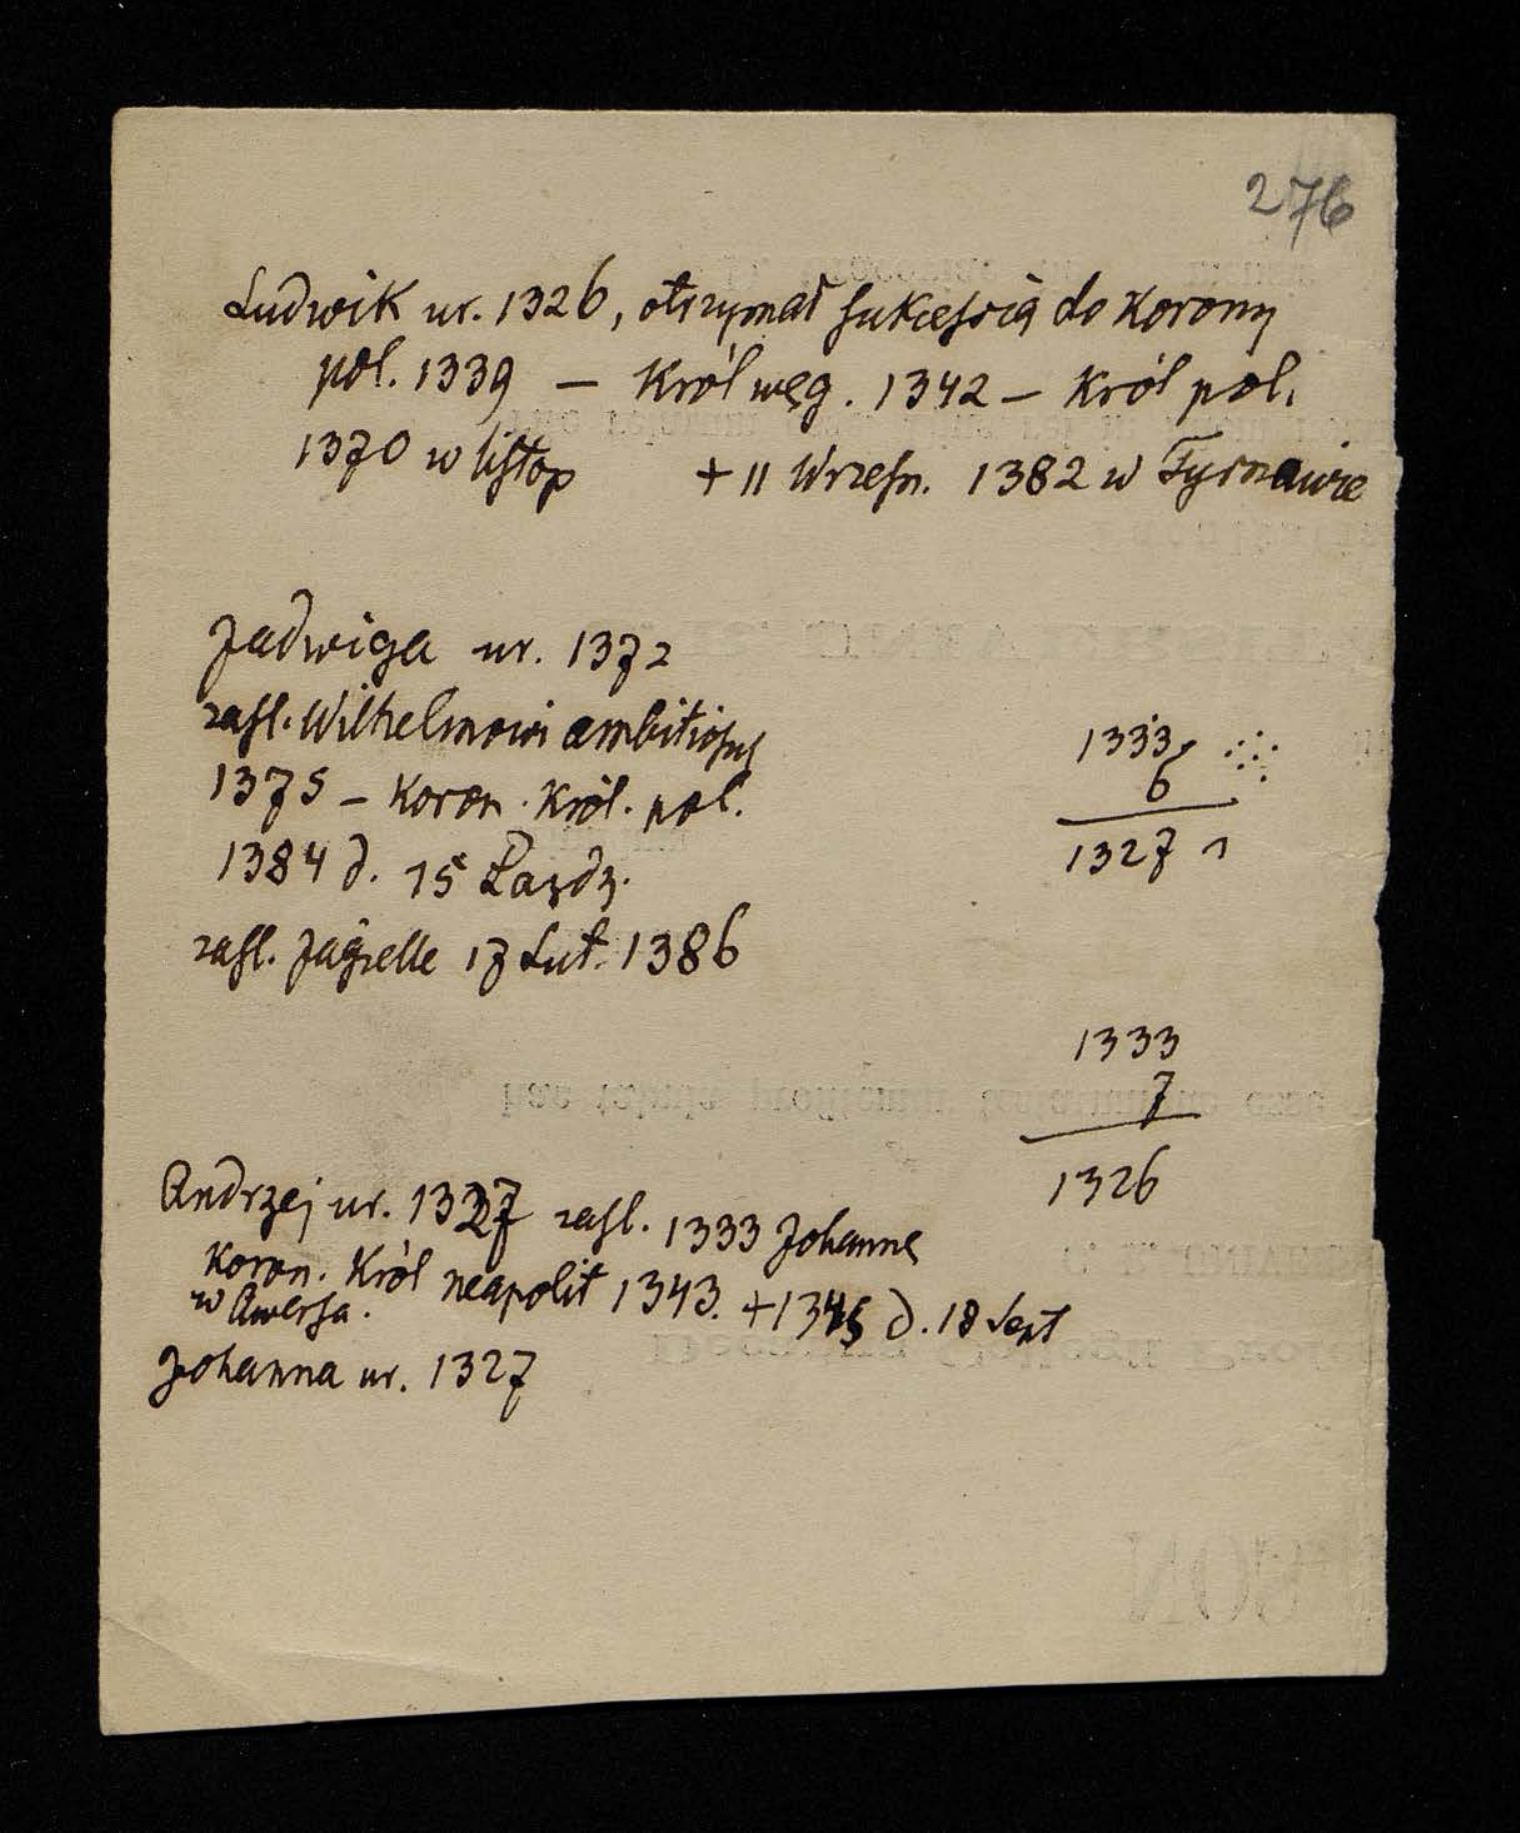 276
Ludwik ur. 1326, otrzymał sukcessią do Korony
pol. 1339 — Król węg. 1342 — Król pol.
1370 w listop + 11 Wrześn. 1382 w Tyrnawie
Jadwiga ur. 1372
zaśl. Wilhelmowi
1375 — Koron. Król. pol.
1384 d. 15 Paźdz.
zaśl. Jagielle 17 Lut. 1386
1333
6
1327 1
1333
7
1326
Andrzej ur. 1327 zaśl. 1333 Johannę
Koron. Król neapolit 1343. + 1345 d. 18 Sept
w Awersa.
Johanna ur. 1327